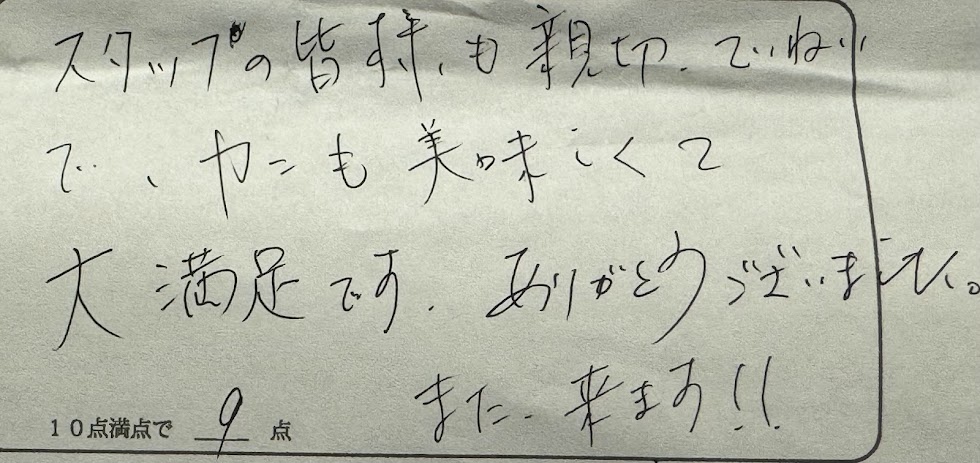 スタッフの皆様も親切、ていねい
で、カニも美味しくて
大満足です。ありがとうございました。
また、来ます!!
10点満点で 9 点